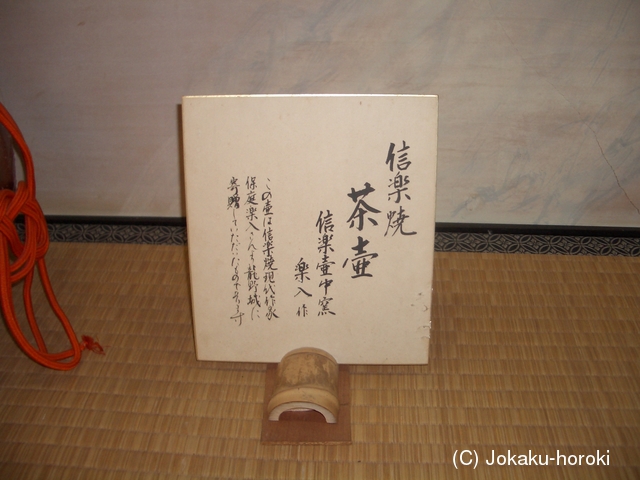 信楽焼
茶壷
信楽壷中窯
楽入作
この壷は信楽焼現代作家
保庭楽入さんより龍野城に
寄贈していただいたものであります
(C) Jokaku-horoki